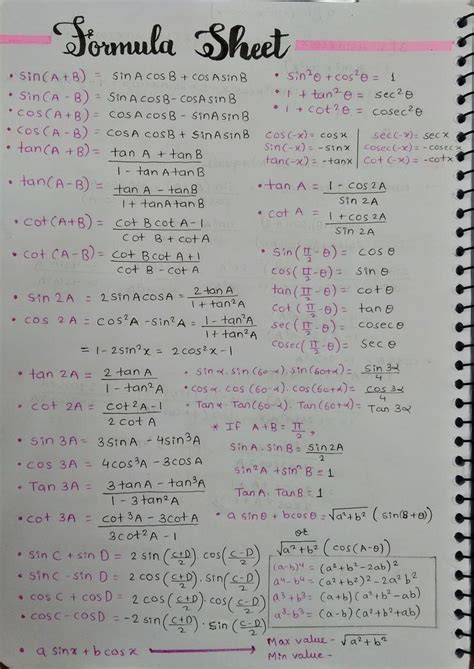 Formula Sheet
• sin(A+B) = sinA cosB + cosA sinB
• sin(A - B) = sinA cosB - cosA sinB
• cos(A+B) = cosA cosB - sinA sinB
• cos(A - B) = cosA cosB + sinA sinB
• tan(A+B) = (tan A + tan B)/(1 - tanA tanB)
• tan(A-B) = (tan A - tan B)/(1 + tanA tanB)
• cot(A+B) = (cot B cot A - 1)/(cot B + cot A)
• cot(A-B) = (cot B cot A + 1)/(cot B - cot A)
• sin 2A = 2 sinA cosA = 2 tanA/(1 + tan²A)
• cos 2A = cos²A - sin²A = (1 - tan²A)/(1 + tan²A)
= 1 - 2sin²x = 2cos²x - 1
• tan 2A = 2 tanA/(1 - tan²A)
• cot 2A = (cot²A - 1)/(2 cot A)
• sin 3A = 3 sinA - 4 sin³A
• cos 3A = 4cos³A - 3cosA
• Tan 3A = (3 tanA - tan³A)/(1 - 3 tan²A)
• cot 3A = (cot³A - 3cotA)/(3cot²A - 1)
• sin C + sin D = 2 sin((C+D)/2) cos((C-D)/2)
• sin C - sin D = 2 cos((C+D)/2) sin((C-D)/2)
• cos C + cos D = 2 cos((C+D)/2) cos((C-D)/2)
• cos C - cos D = -2 sin((C+D)/2) . sin((C-D)/2)
• a sinx + b cosx → Max value - √(a²+b²)
Min value -
• sin²θ + cos²θ = 1
• 1 + tan²θ = sec²θ
• 1 + cot²θ = cosec²θ
cos(-x) = cosx | sec(-x) = sec x
sin(-x) = -sinx | cosec(-x) = -cosec x
tan(-x) = -tanx | cot(-x) = -cotx
• tan A = (1 - cos2A)/sin 2A
• cot A = (1 + cos2A)/sin 2A
• sin(π/2 - θ) = cos θ
cos(π/2 - θ) = sin θ
tan(π/2 - θ) = cot θ
cot(π/2 - θ) = tan θ
sec(π/2 - θ) = cosec θ
cosec(π/2 - θ) = sec θ
• sin α . sin(60-α) . sin(60+α) = sin 3α/4
• cos α . cos(60-α) . cos(60+α) = cos 3α/4
• Tan α . Tan(60-α) . Tan(60+α) = Tan 3α
* If A+B = π/2,
sinA . sinB = sin2A/2
sin²A + sin²B = 1
TanA . TanB = 1
• a sinθ + b cosθ = √(a²+b²) (sin(B+θ))
or
√(a²+b²) (cos(A-θ))
(a-b)⁴ = (a²+b²-2ab)²
a⁴-b⁴ = (a²+b²)² - 2a²b²
a³+b³ = (a+b)(a²+b²-ab)
a³-b³ = (a-b)(a²+b²+ab)